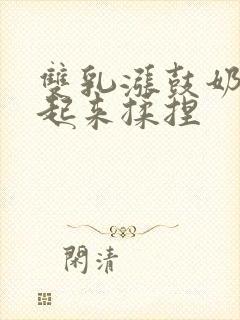 雙乳漲鼓奶
起来揉捏
閑清